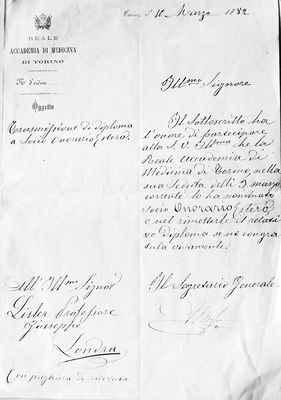 Torino, il 10 Marzo 1882.
REALE
ACCADEMIA DI MEDICINA
DI TORINO
N. d'ordine
Oggetto
Trasmissione di diploma
a Socio Onorario Estero.
Ill.mo Signore
Il Sottoscritto ha
l'onore di partecipare
alla S. V. Ill.ma che la
Reale Accademia di
Medicina di Torino, nella
sua Seduta delli 3 marzo
corrente lo ha nominato
Socio Onorario Estero
e nel rimetterle il relati
vo diploma se ne congra
tula vivamente.
Il Segretario Generale
All' Ill.mo Signor
Lister Professore
Giuseppe
Londra
Con preghiera di ricevuta